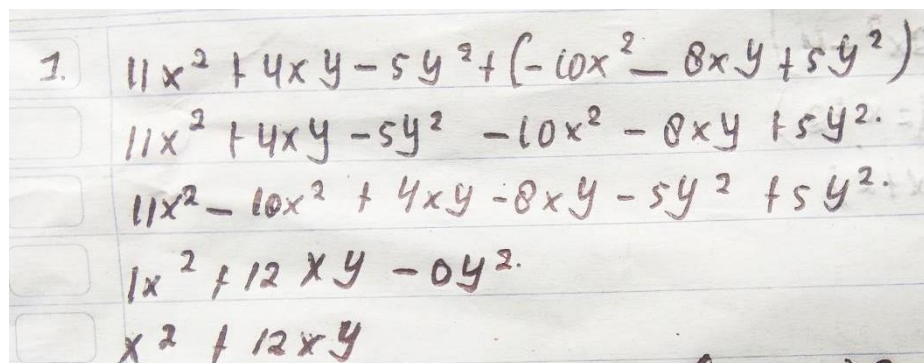 1. 11x² + 4xy - 5y² + (-10x² - 8xy + 5y²)
11x² + 4xy - 5y² - 10x² - 8xy + 5y².
11x² - 10x² + 4xy - 8xy - 5y² + 5y².
1x² + 12xy - 0y².
x² + 12xy